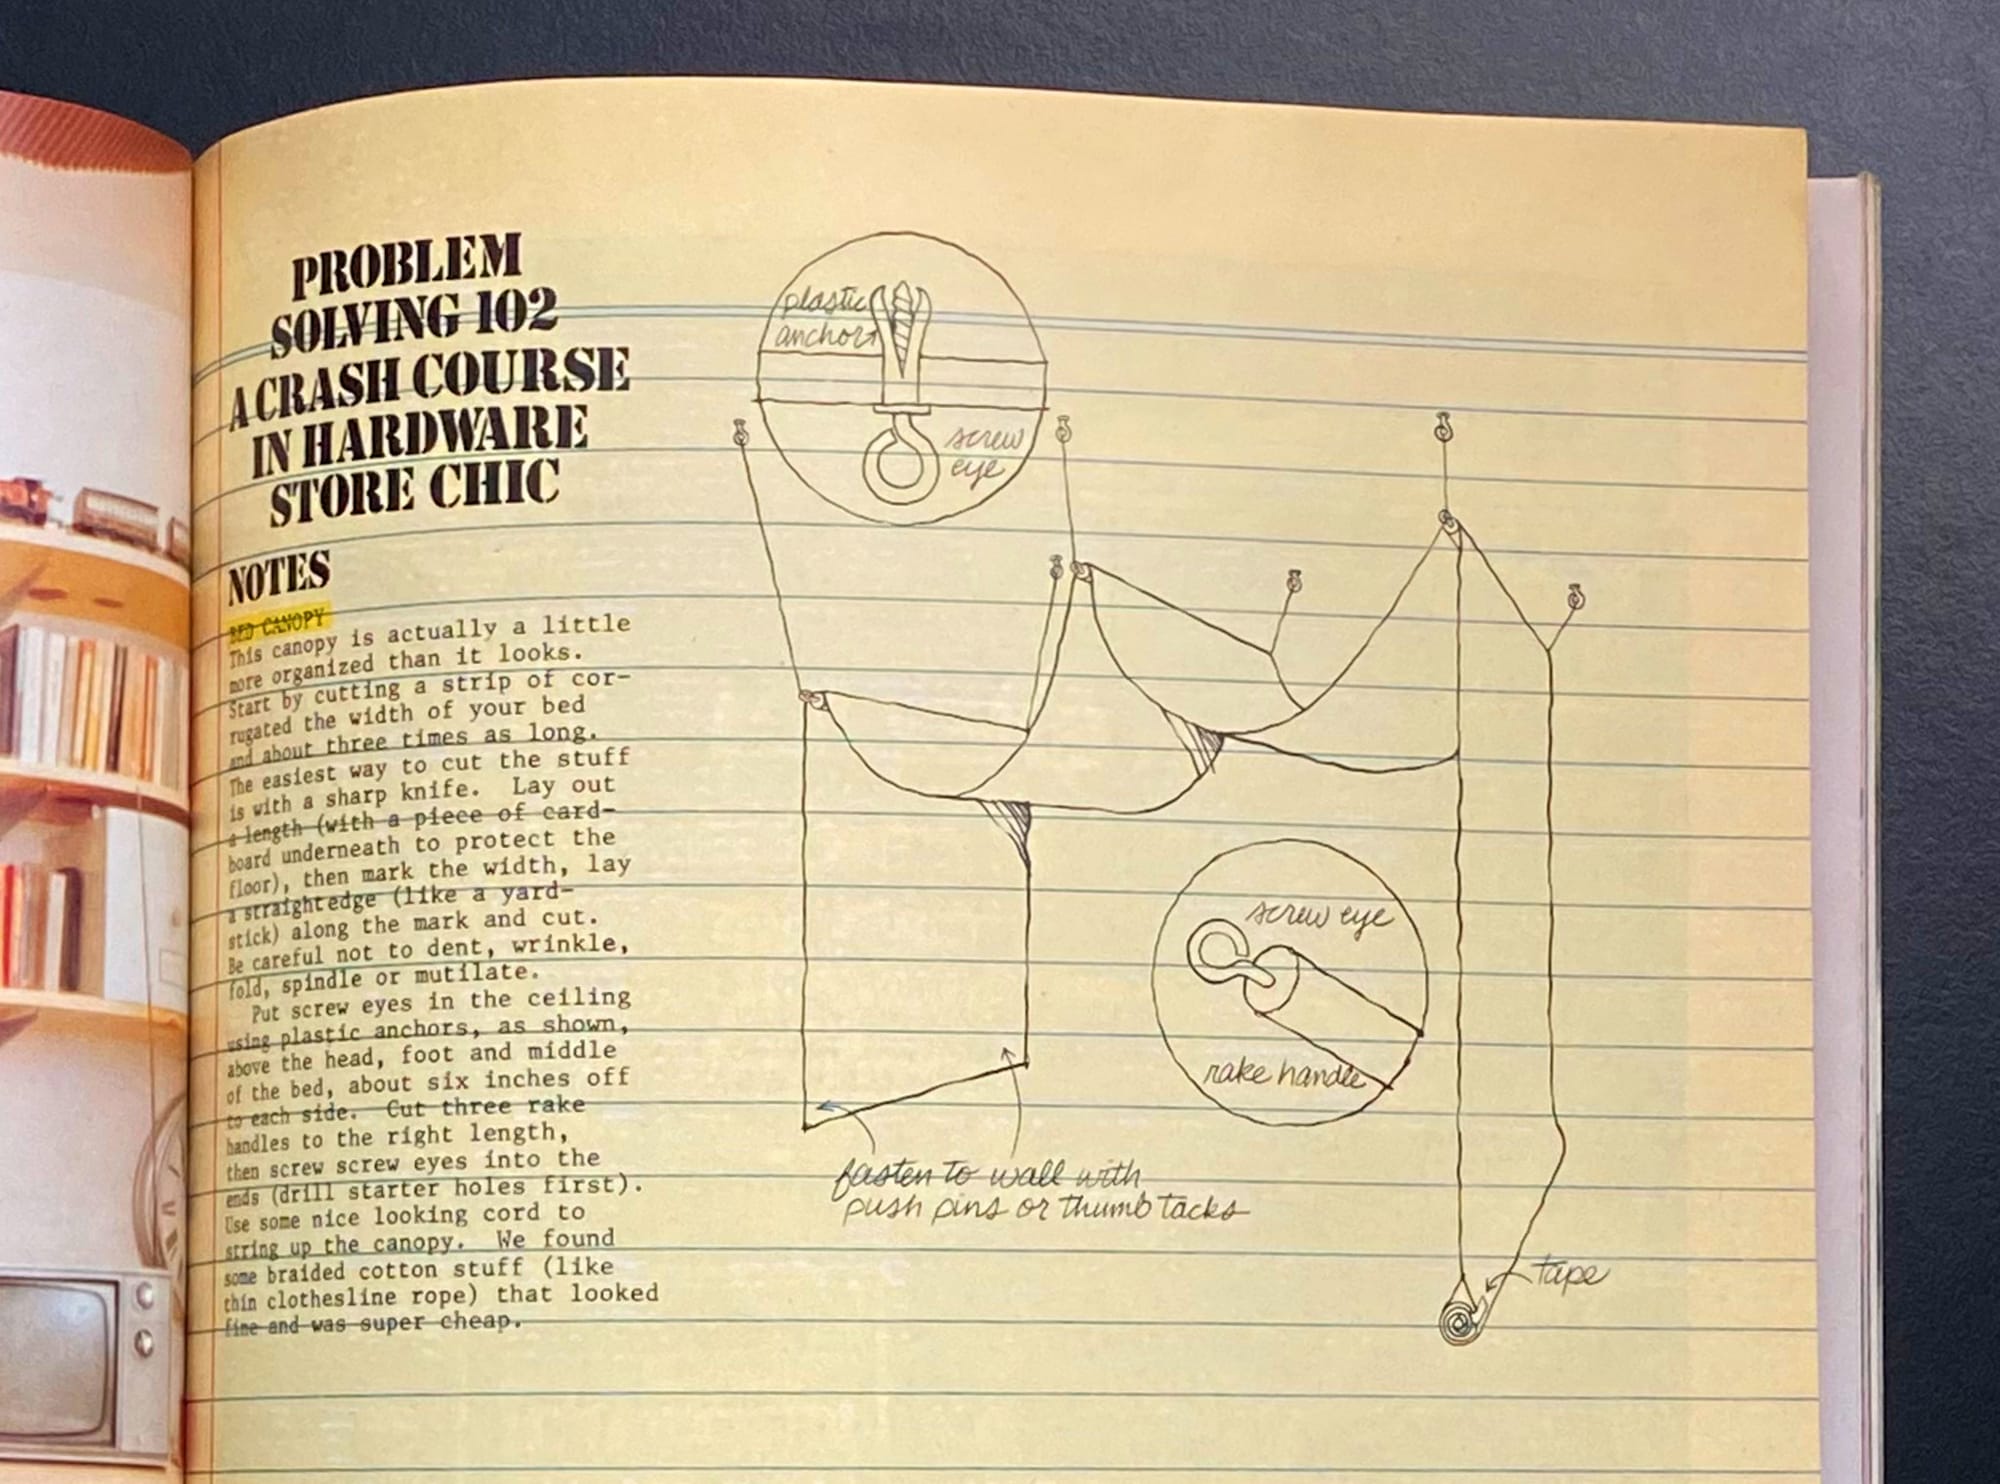 PROBLEM
SOLVING 102
A CRASH COURSE
IN HARDWARE
STORE CHIC
NOTES
BED CANOPY
This canopy is actually a little
more organized than it looks.
Start by cutting a strip of cor-
rugated the width of your bed
and about three times as long.
The easiest way to cut the stuff
is with a sharp knife. Lay out
a length (with a piece of card-
board underneath to protect the
floor), then mark the width, lay
a straightedge (like a yard-
stick) along the mark and cut.
Be careful not to dent, wrinkle,
fold, spindle or mutilate.
Put screw eyes in the ceiling
using plastic anchors, as shown,
above the head, foot and middle
of the bed, about six inches off
to each side. Cut three rake
handles to the right length,
then screw screw eyes into the
ends (drill starter holes first).
Use some nice looking cord to
string up the canopy. We found
some braided cotton stuff (like
thin clothesline rope) that looked
fine and was super cheap.
plastic
anchor
screw
eye
screw eye
rake handle
fasten to wall with
push pins or thumb tacks
tape